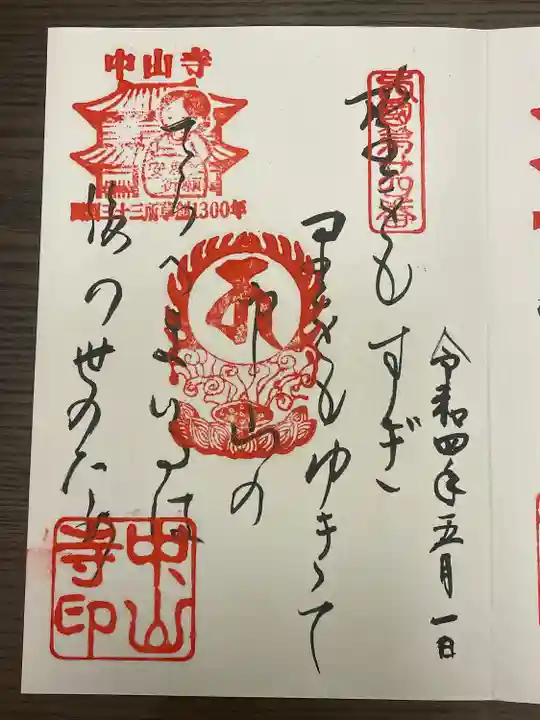 西國第廿四番
令和四年五月一日
野をもすぎ
里をもゆきて
中山の
てらへまいるは
後の世のため
中山寺
安産
祈願
西国三十三所草創1300年
中山寺印